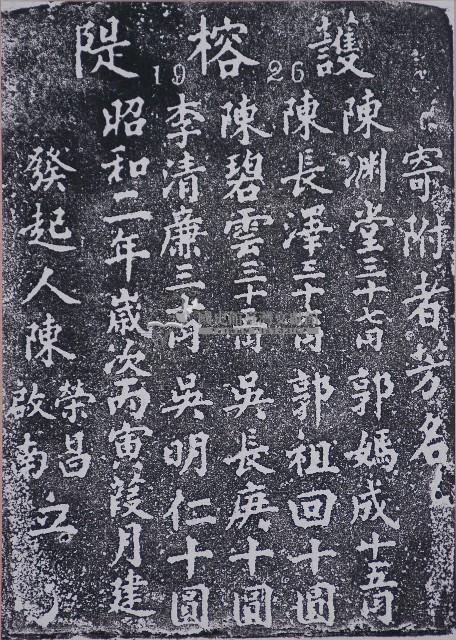 護榕隄
1926
寄附者芳名
陳渊堂三十七円 郭媽成十五円
陳長澤三十円 郭祖回十圓
陳碧雲三十円 吳長庚十圓
李清廉三 吳明仁十圓
昭和二年歲次丙寅葭月建
發起人陳榮昌啟南立